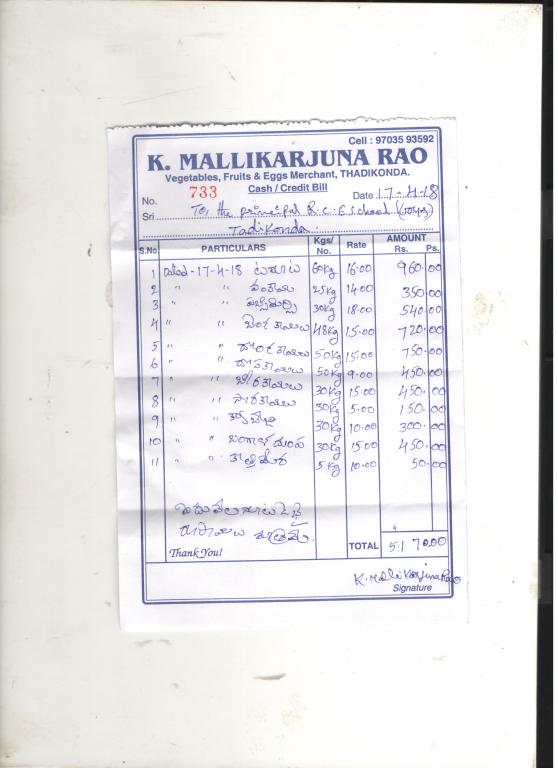 Cell : 97035 93592
K. MALLIKARJUNA RAO
Vegetables, Fruits & Eggs Merchant, THADIKONDA.
Cash / Credit Bill
No. 733 Date 17-4-18
Sri To, the principal R.C.E. School
Tadikonda.
S.No PARTICULARS Kgs/No. Rate AMOUNT Rs. Ps.
1 Dated-17-4-18 టమాట 60kg 16.00 960.00
2 " " వంకాయ 25kg 14.00 350.00
3 " " పచ్చిమిర్చి 30kg 18.00 540.00
4 " " 48kg 15.00 720.00
5 " " దొండకాయలు 50kg 15.00 750.00
6 " " దోసకాయలు 50kg 9.00 450.00
7 " " బీరకాయలు 30kg 15.00 450.00
8 " " సొరకాయలు 30kg 5.00 150.00
9 " " క్యాబేజి 30kg 10.00 300.00
10 " " బంగాళదుంప 30kg 15.00 450.00
11 " " కొత్తిమీర 5kg 10.00 50.00
రూపాయలు మాత్రమే.
Thank You! TOTAL 5170.00
K. Mallikarjuna Rao
Signature